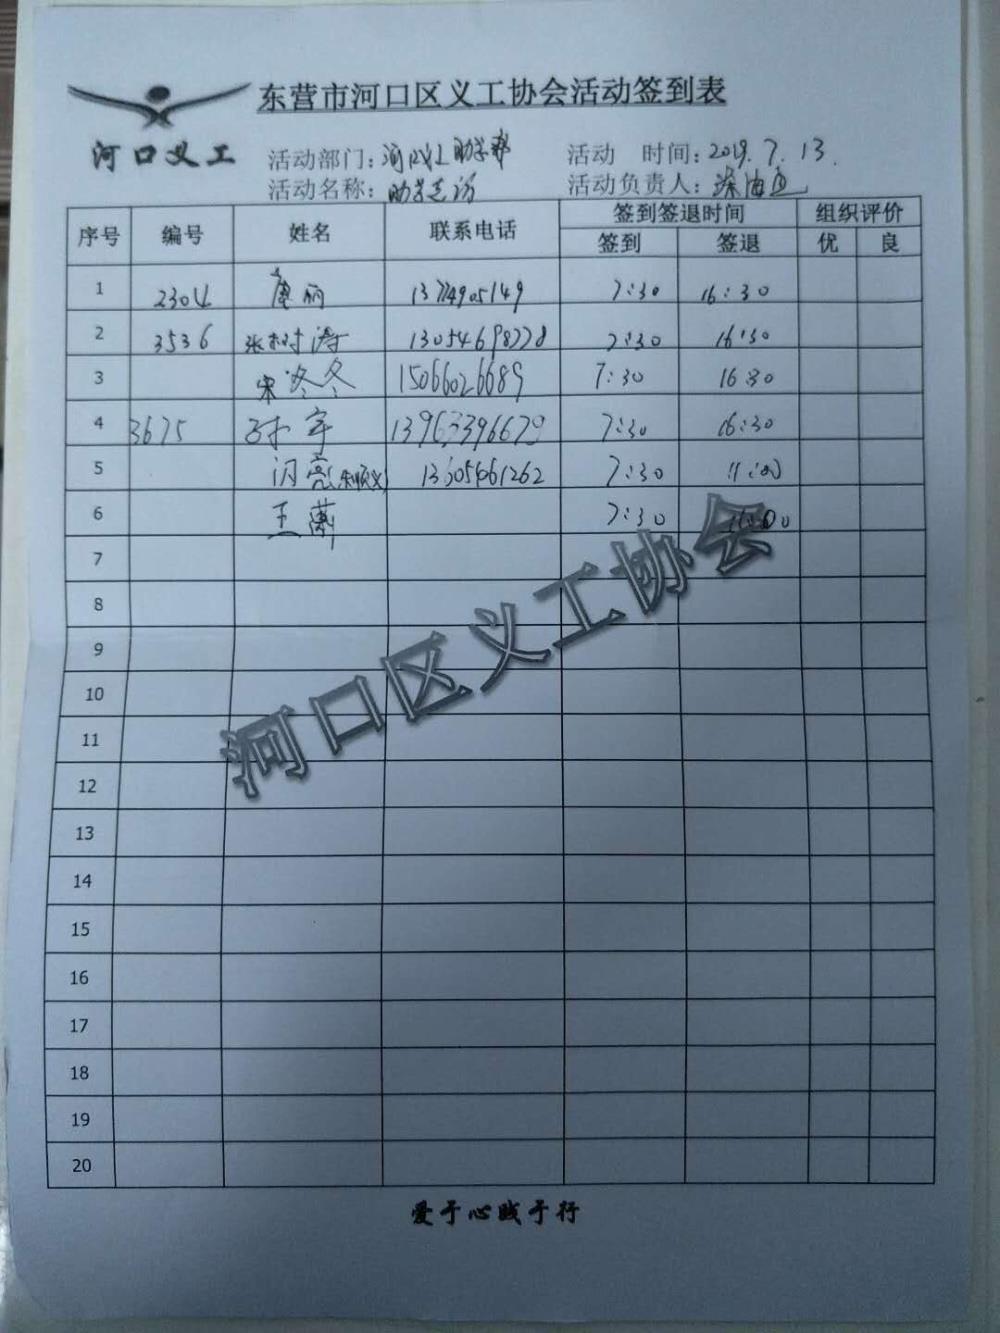 东营市河口区义工协会活动签到表
河口义工
活动部门：河口义工助学部 活动 时间：2019.7.13.
活动名称：助学走访 活动负责人：深海鱼
序号 编号 姓名 联系电话 签到签退时间 组织评价
签到 签退 优 良
1 2304 康丽 7:30 16:30
2 3536 张树涛 7:30 16:30
3 宋冬冬 15066026689 7:30 16:30
4 3675 孙宇 13963396679 7:30 16:30
5 闪亮 7:30 11:00
6 王 7:30
7
8
9
10
11
12
13
14
15
16
17
18
19
20
河口区义工协会
爱于心践于行